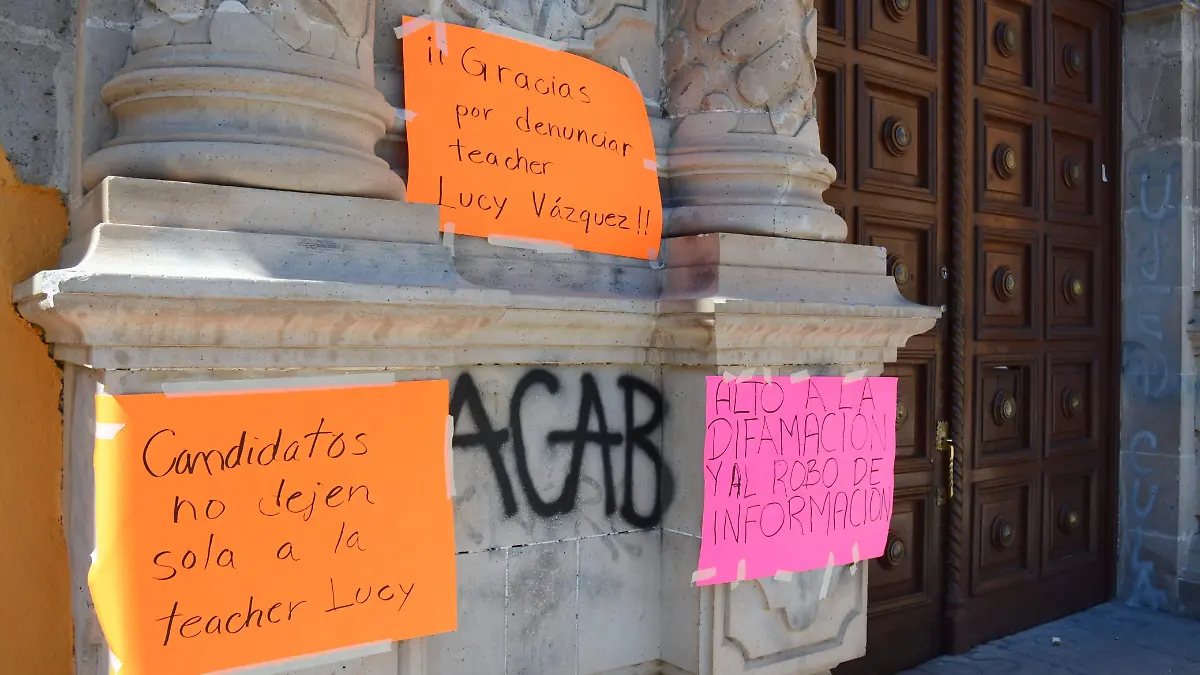 ¡¡ Gracias
por denunciar
teacher
Lucy Vázquez!!
Candidatos
no dejen
sola a la
teacher Lucy
ACAB
ALTO A LA
DIFAMACIÓN
Y AL ROBO DE
INFORMACIÓN